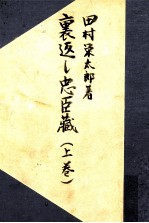 田村栄太郎著
裏返し忠臣藏(上巻)